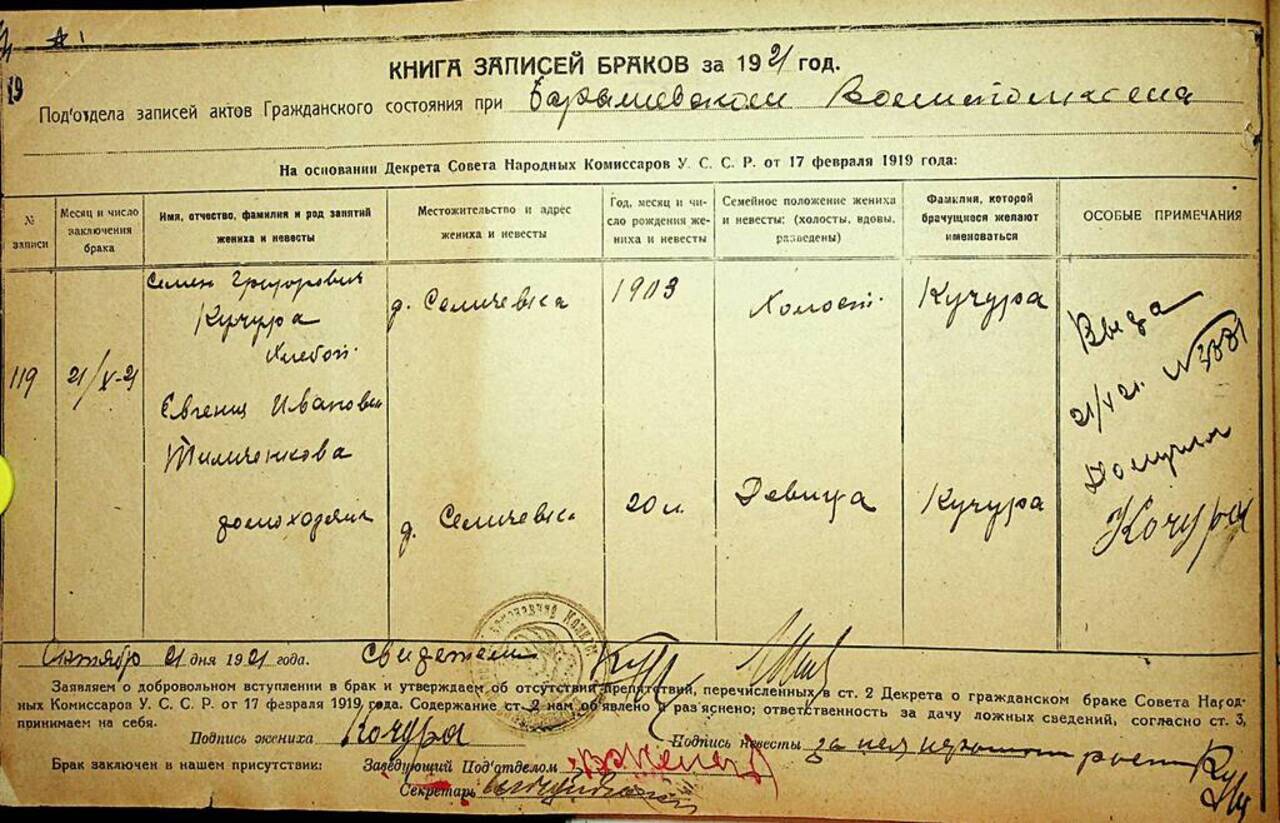 19
КНИГА ЗАПИСЕЙ БРАКОВ за 1921 год.
Под'отдела записей актов Гражданского состояния при Барышевском
На основании Декрета Совета Народных Комиссаров У. С. С. Р. от 17 февраля 1919 года:
№ записи
Месяц и число заключения брака
Имя, отчество, фамилия и род занятий жениха и невесты
Местожительство и адрес жениха и невесты
Год, месяц и число рождения жениха и невесты
Семейное положение жениха и невесты: (холосты, вдовы, разведены)
Фамилия, которой брачущиеся желают именоваться
ОСОБЫЕ ПРИМЕЧАНИЯ
119
21/X-21
Семен Григорович
Кучура
Хлебоп.
д. Селичевка
1903
Холост.
Кучура
Евгения Ивановн
Тимченкова
домохозяйк
д. Селичевка
20 л.
Девица
Кучура
Выда
21/X 21. №
Получил
Кочура
Октября 21 дня 1921 года. Свидетели
Заявляем о добровольном вступлении в брак и утверждаем об отсутствии препятствий, перечисленных в ст. 2 Декрета о гражданском браке Совета Народ-
ных Комиссаров У. С. С. Р. от 17 февраля 1919 года. Содержание ст. 2 нам об'явлено и раз'яснено; ответственность за дачу ложных сведений, согласно ст. 3,
принимаем на себя.
Подпись жениха Кочура Подпись невесты за нея
Брак заключен в нашем присутствии: Заведующий Под'отделом
Секретарь